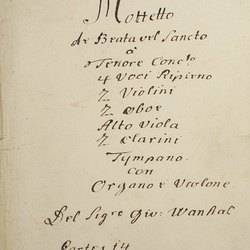 Mottetto
de Beata vel Sancto
à
Tenore Conc:to
4 Voci Ripieno
2 Violini
2 Oboe
Alto Viola
2 Clarini
Tympano.
con
Organo e Violone
Del Sigre Giov: Wanhal
Partes 14